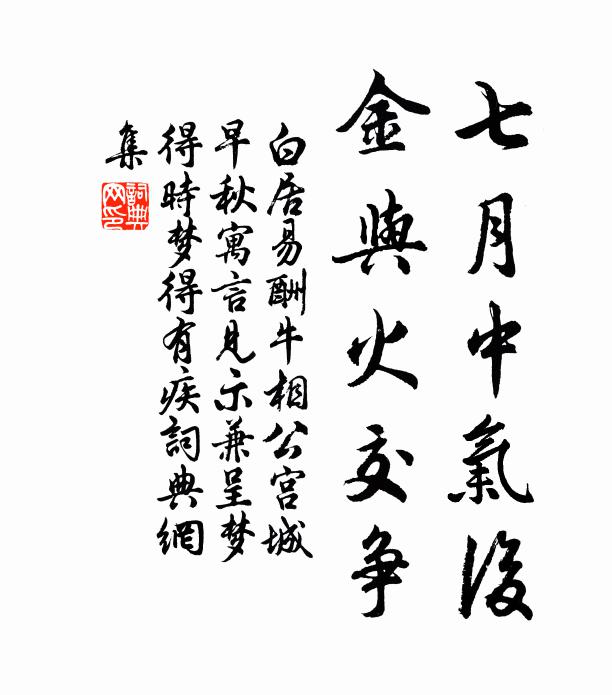 七月中氣後
金與火交爭
白居易酬牛相公宮城
早秋寓言見示兼呈梦
得時梦得有疾詞典網
集
詞典
网印